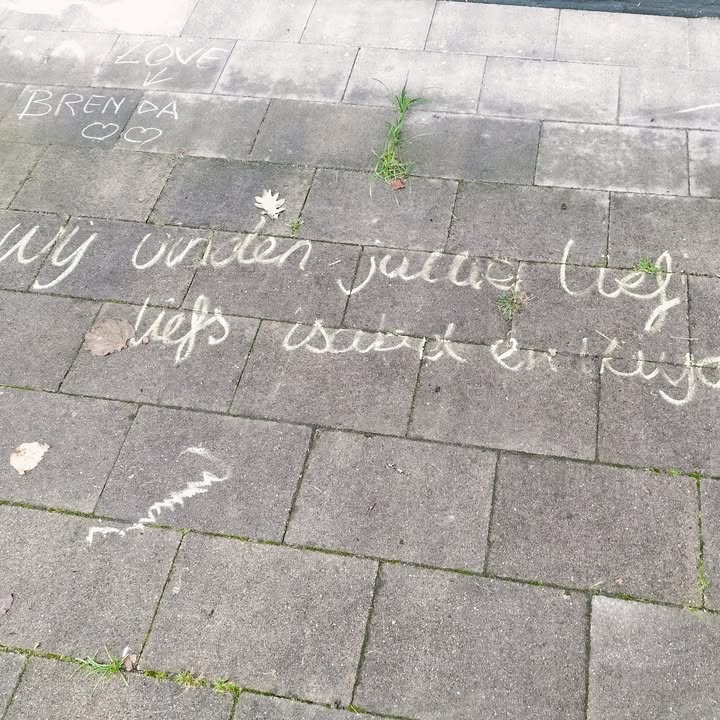 LOVE
BRENDA
Wij vinden jullie lief
liefs en